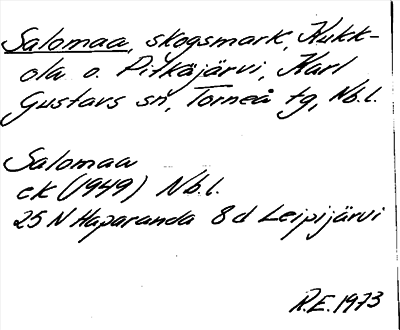 Salomaa, skogsmark, Kukk-
ola o. Pitkäjärvi, Karl
Gustavs sn, Torneå tg, Nb.l.
Salomaa
ek (1949) Nb.l.
25 N Haparanda 8d Leipijärvi
R.E. 1973